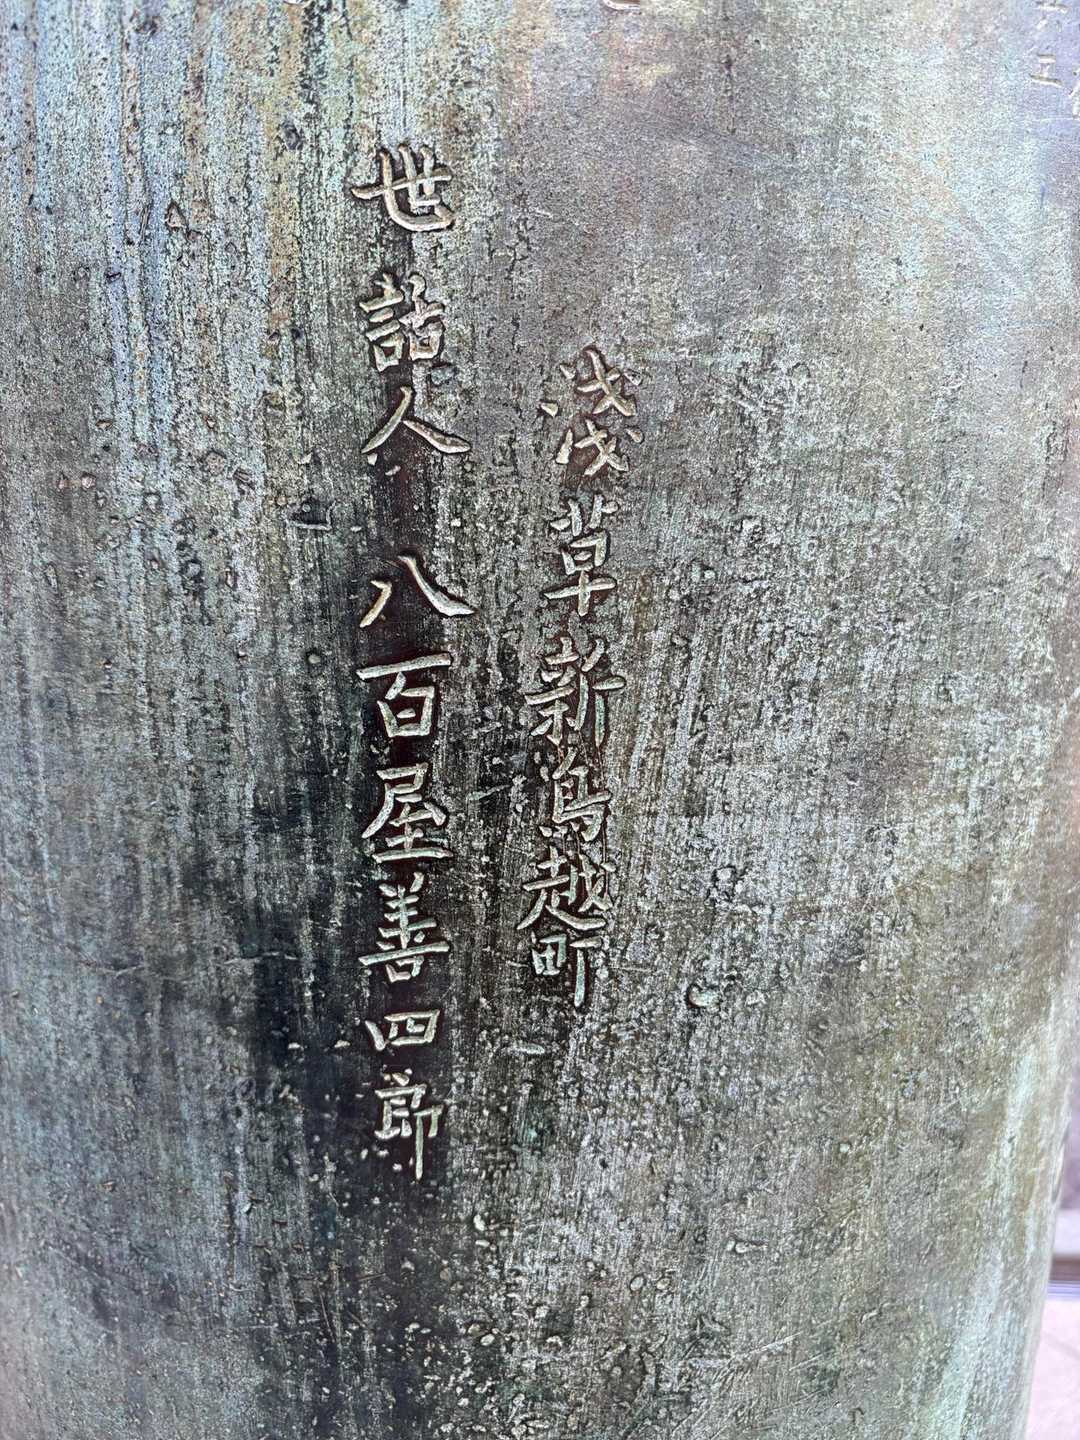 淺草新鳥越町
世話人 八百屋善四郎